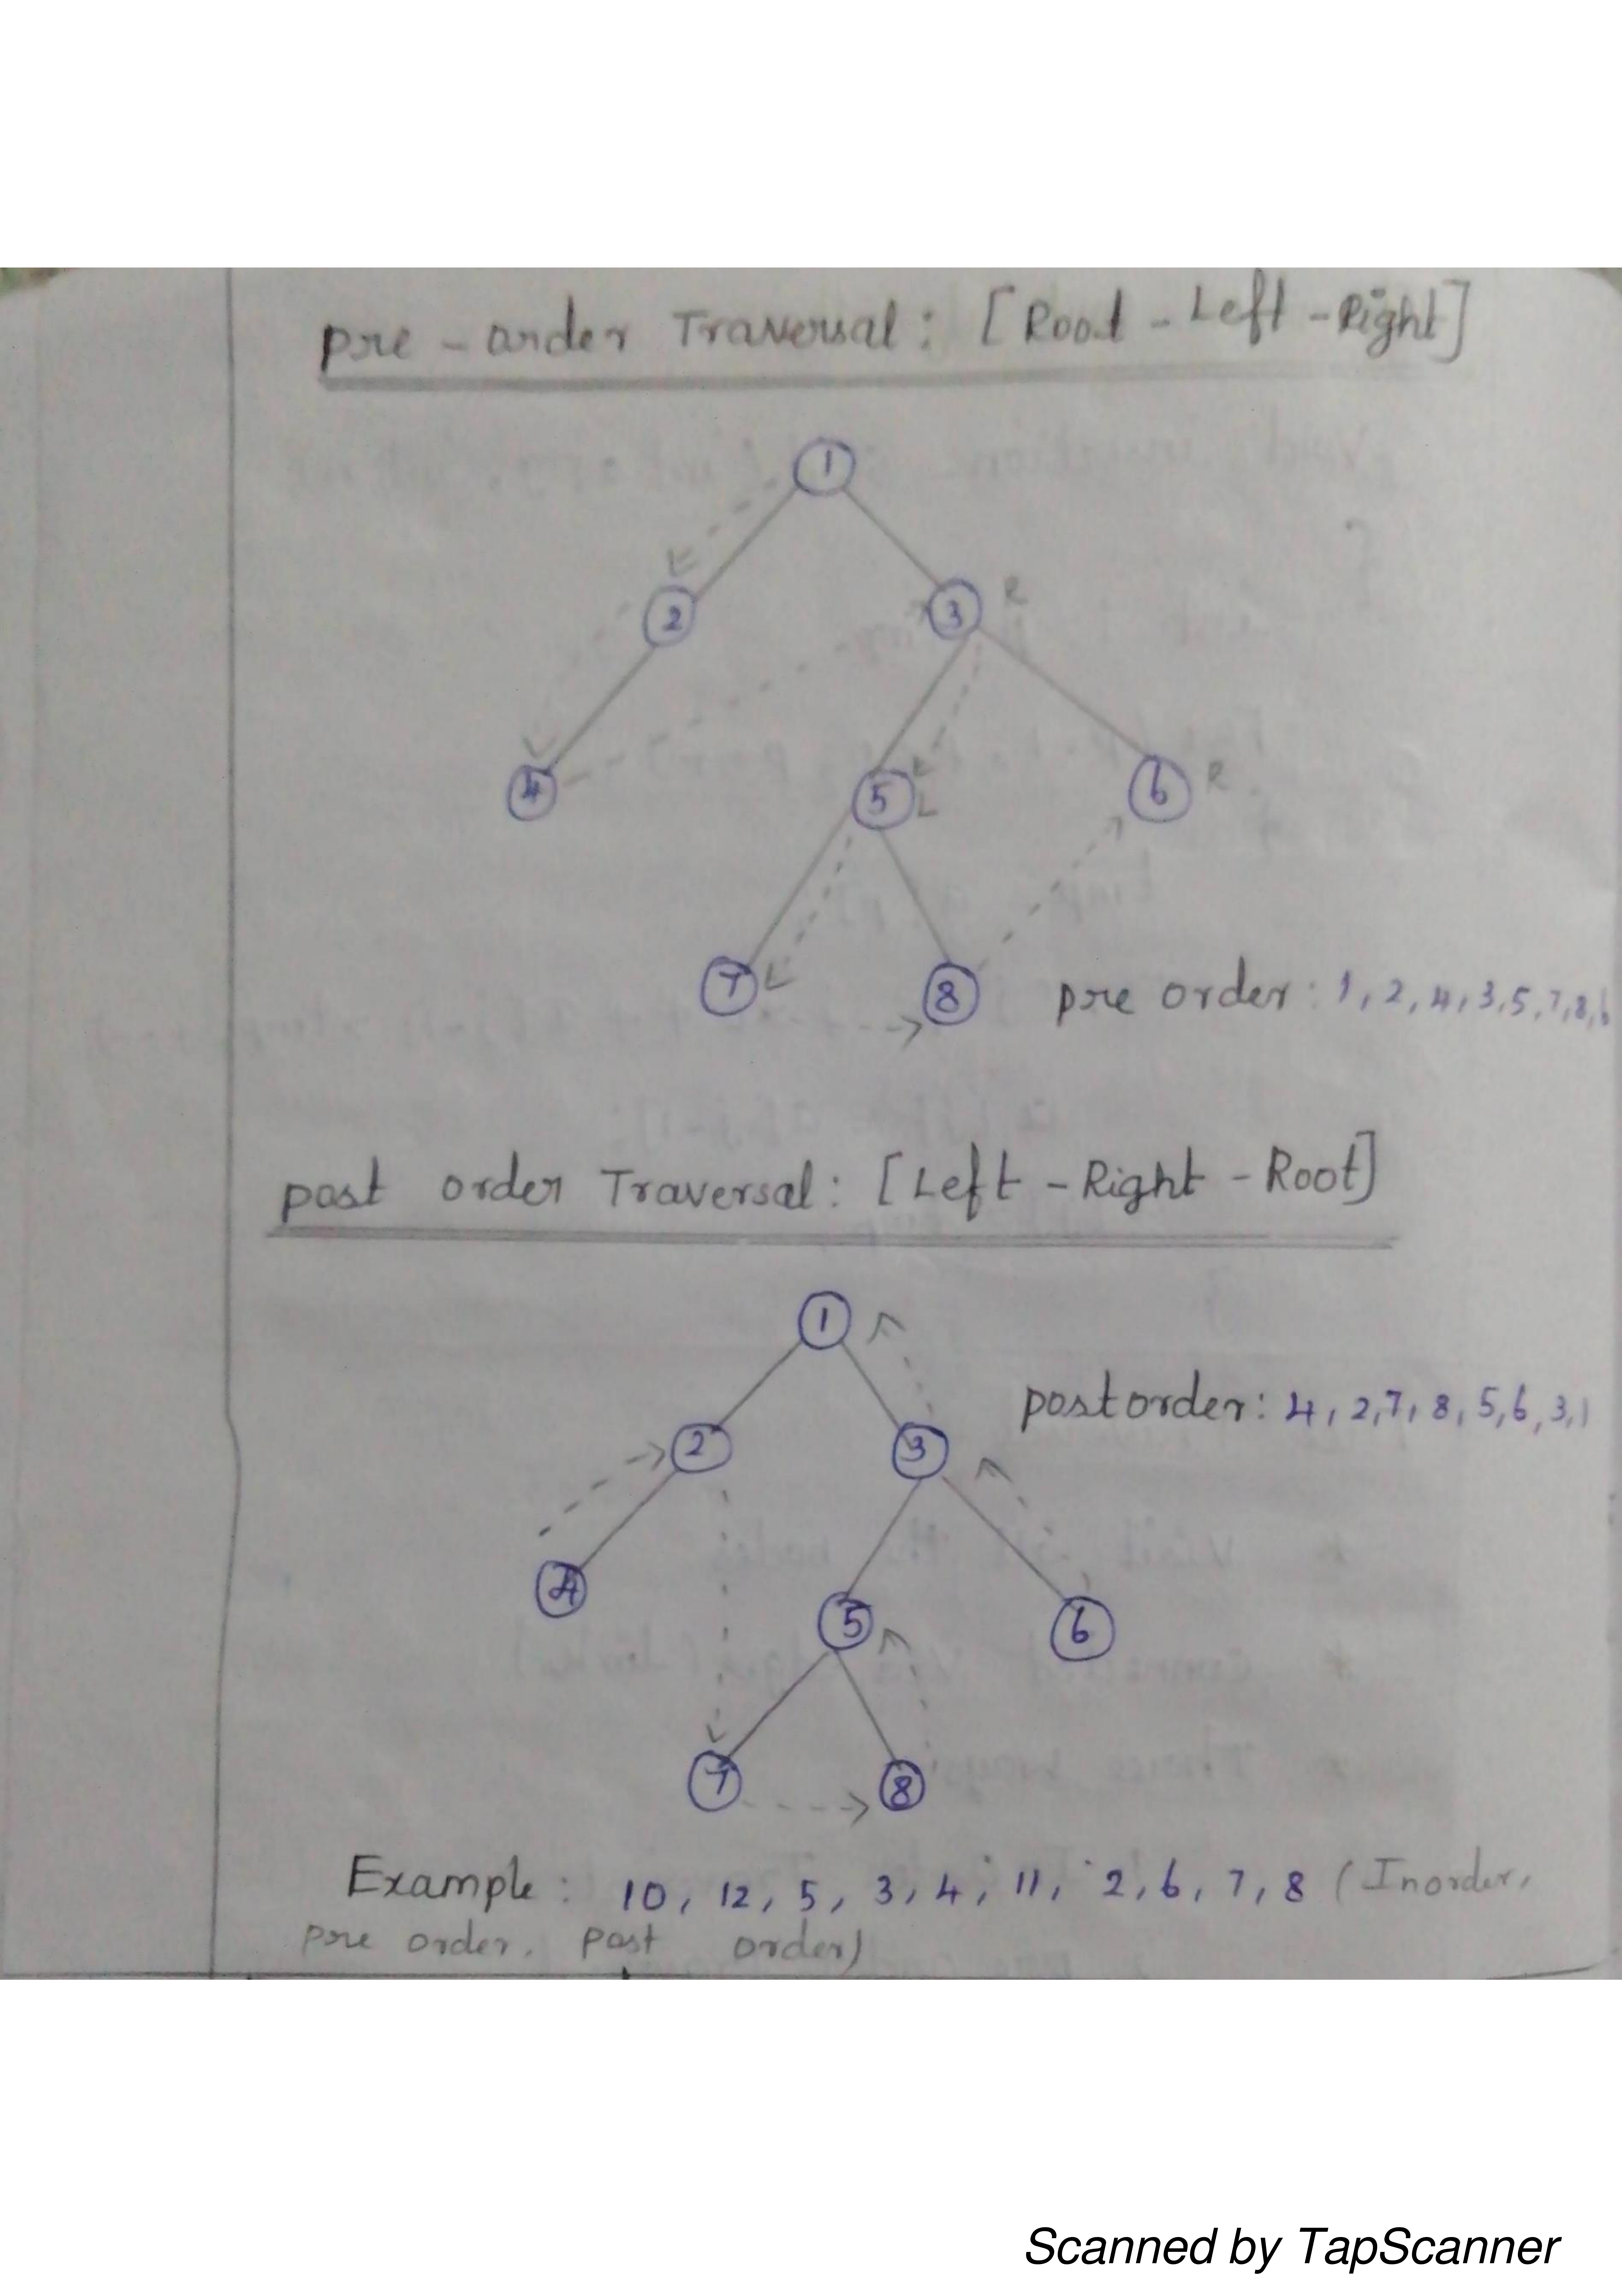 pre - order Traversal: [Root - Left - Right]
1
2
3 R
4
5 L
6 R
7
8
pre order: 1, 2, 4, 3, 5, 7, 8, 6
post order Traversal: [Left - Right - Root]
1
postorder: 4, 2, 7, 8, 5, 6, 3, 1
2
3
4
5
6
7
8
Example: 10, 12, 5, 3, 4, 11, 2, 6, 7, 8 (Inorder,
pre order, post order)
Scanned by TapScanner